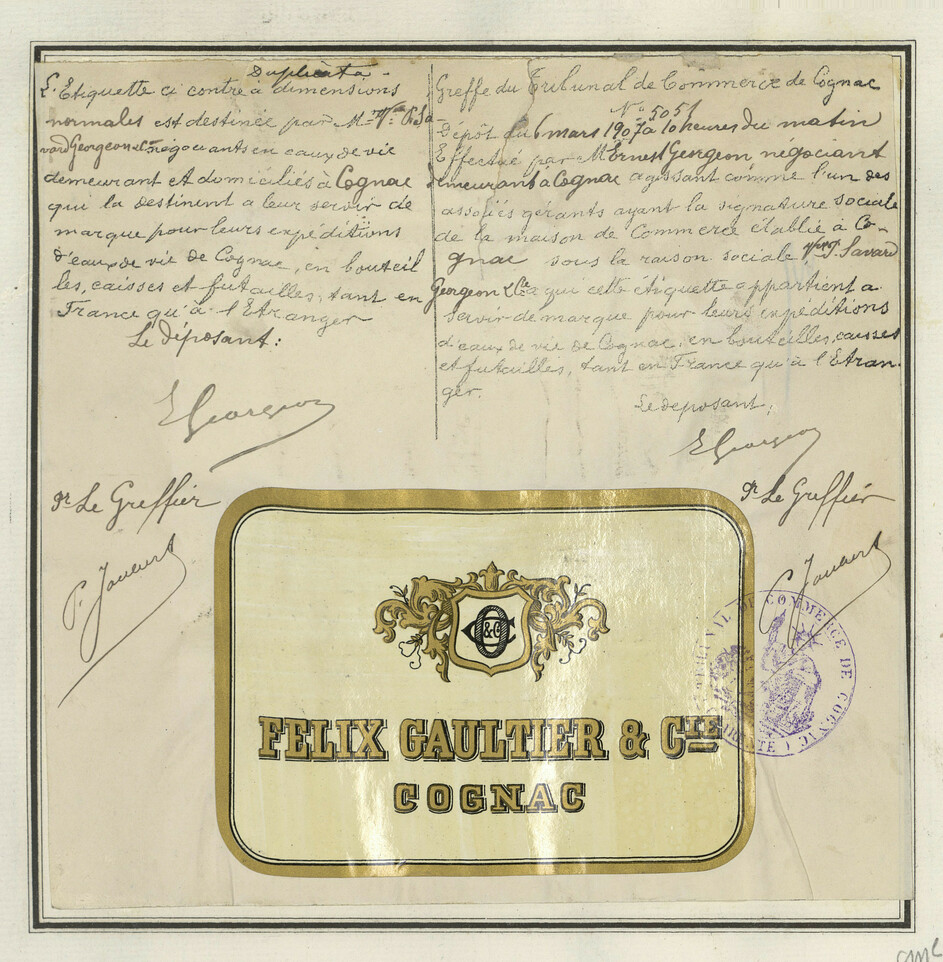 Duplicata.
L'Etiquette ci contre à dimensions
normales est destinée par Mme Vve P. Sa
vard Georgeon & Cie négociants en eaux de vie
demeurant et domiciliés à Cognac
qui la destinent à leur servir de
marque pour leurs expéditions
d'eaux de vie de Cognac, en bouteil
les, caisses et futailles, tant en
France qu'à l'Etranger
Le déposant:
E Georgeon
pr Le Greffier
Greffe du Tribunal de Commerce de Cognac
No 5051
Dépôt du 6 mars 1907 à 10 heures du matin
Effectué par M Ernest Georgeon négociant
demeurant à Cognac agissant comme l'un des
associés gérants ayant la signature sociale
de la maison de Commerce établie à Co-
gnac sous la raison sociale Savard
Georgeon & Cie a qui cette étiquette appartient a
servir de marque pour leurs expéditions
d'eaux de vie de Cognac, en bouteilles, caisses
et futailles, tant en France qu'à l'Etran-
ger.
Le déposant,
E Georgeon
pr Le Greffier
TRIBUNAL DE COMMERCE DE COGNAC
& Co
FELIX GAULTIER & CIE
COGNAC